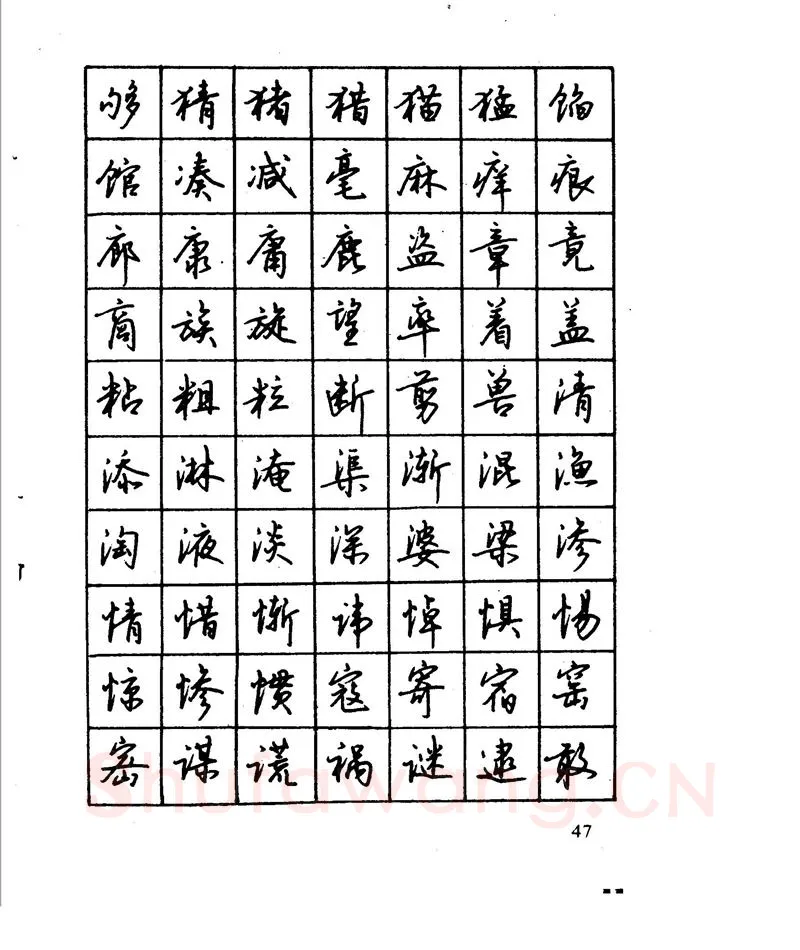 够 猜 猪 猎 猫 猛 馅
馆 凑 减 毫 麻 痒 痕
廊 康 庸 鹿 盗 章 竟
商 族 旋 望 率 着 盖
粘 粗 粒 断 剪 兽 清
添 淋 淹 渠 渐 混 渔
淘 液 淡 深 婆 梁 渗
情 惜 惭 讳 悼 惧 惕
惊 惨 惯 寇 寄 宿 窑
密 谋 谎 祸 谜 逮 敢
Shufawang.CN
47